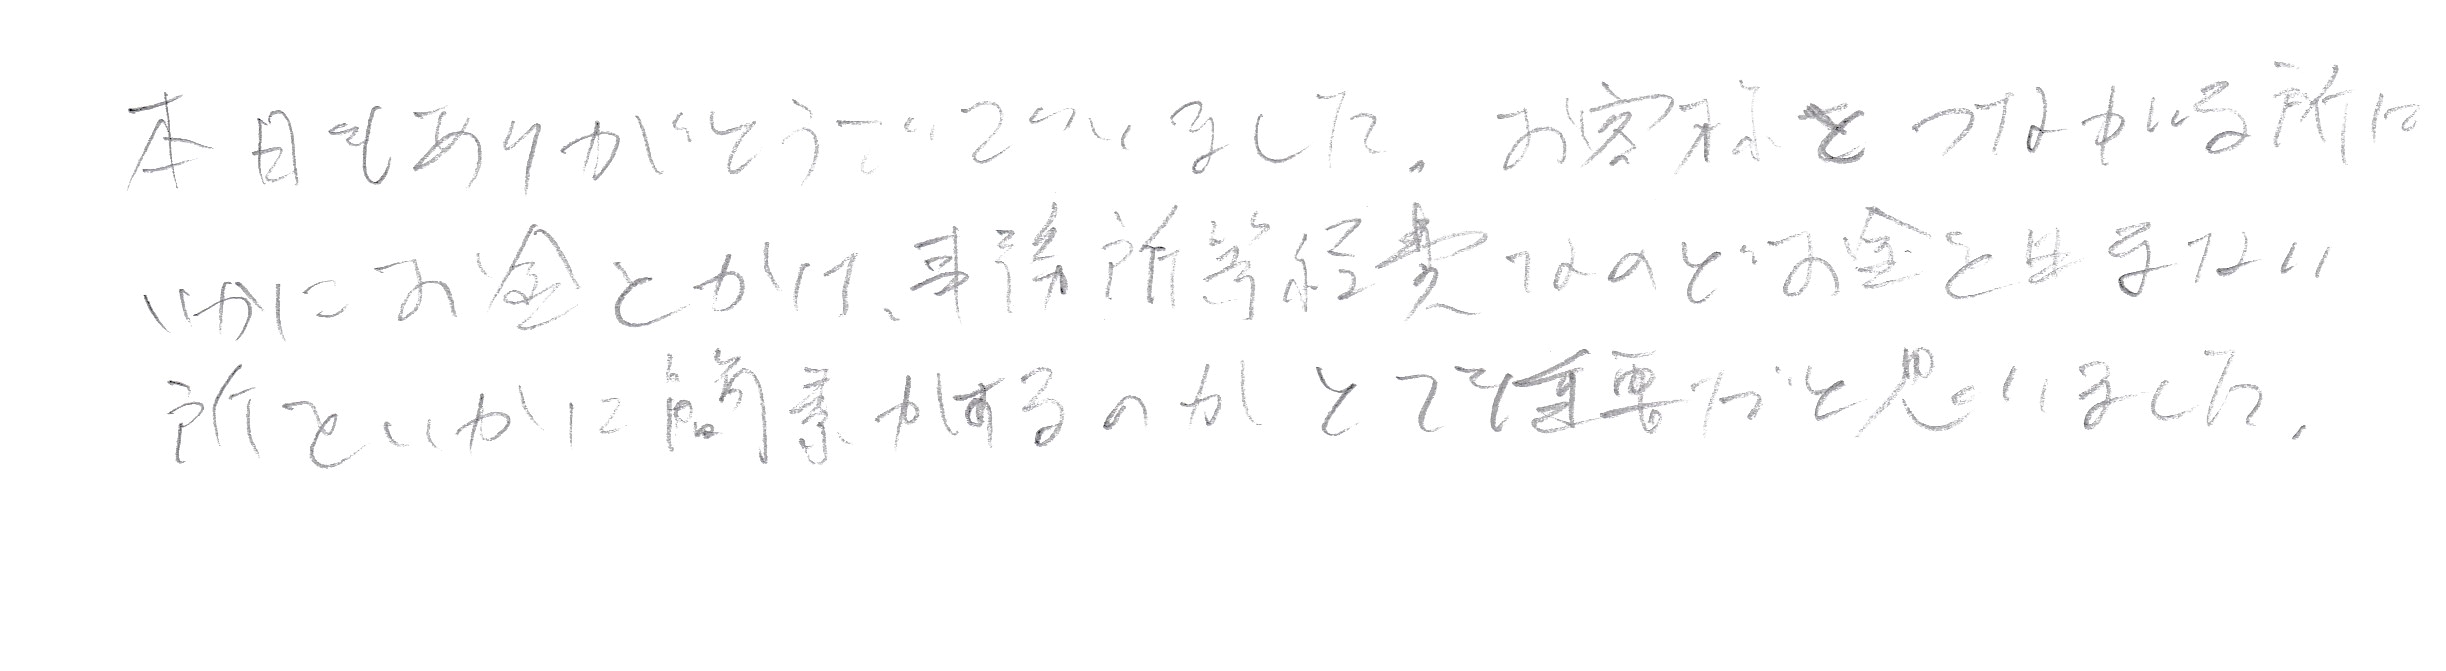 本日もありがとうございました。お客様とつながる所に
いかにお金とかけ、事務所等経費などのお金を出さない
所をいかに簡素かするのかとても重要だと思いました。